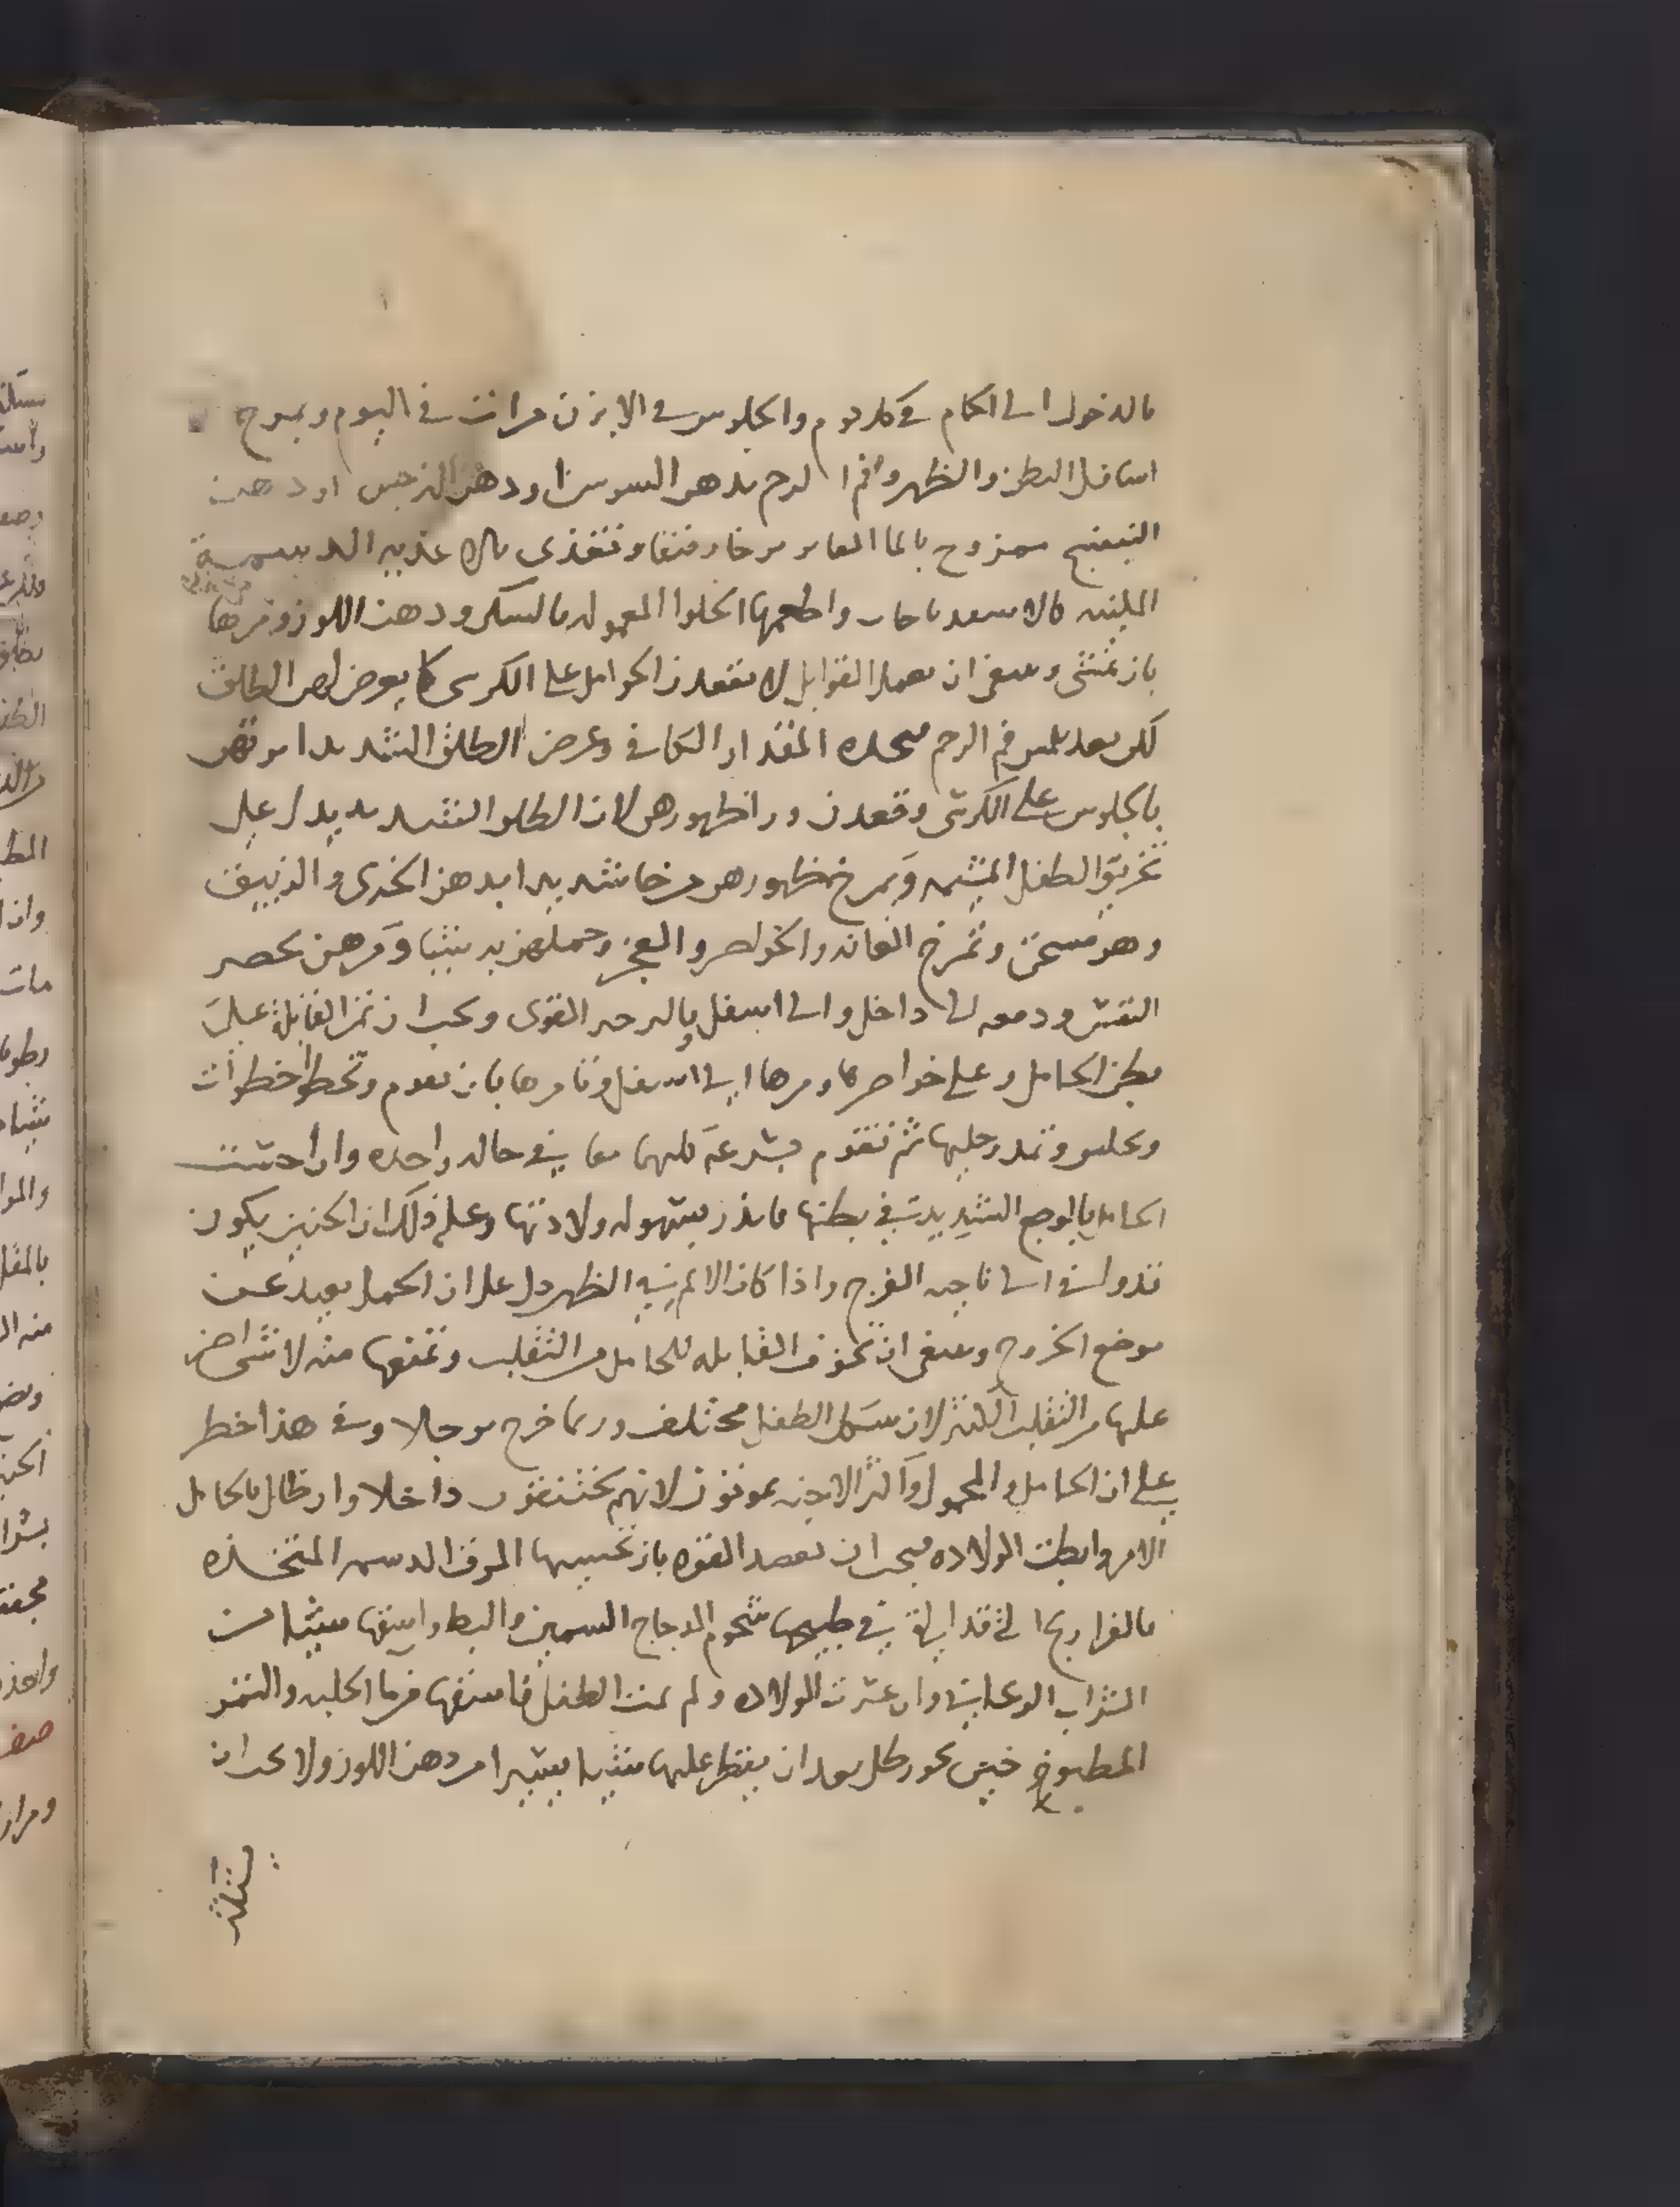 بالدخول الى الحمام في كل يوم والجلوس في الابزن مرات في اليوم ويمرخ
اسافل البطن والظهر وفم الرحم بدهن السوسن او دهن النرجس او دهن
البنفسج ممزوج بالما الفاتر مرخا رفيقا وتغذى بالاغذيه الدسمة
الملينه كالاسفيدباجات واطعمها الحلوا المعموله بالسكر ودهن اللوز ومرها
بان تمشى وينبغى ان القوابل لا يقعدن الحوامل على الكرسى كما يعرض لهن الطلق
لكن بعد يلمس فم الرحم المقدار الكافى وعرض الطلق الشديد امرتهن
بالجلوس على الكرسى وقعدن ورا ظهورهن لان الطلق الشديد يدل على
تخريق الطفل المشيمه ويمرخ ظهورهن مرخا شديدا بدهن الخيرى والزنبق
وهو مسخن وتمرخ العانه والخواصر والعجز ومرهن بحصر
النفس ودفعه الى داخل والى اسفل بالزحير القوى ويجب ان تمر القابلة على
بطن الحامل وعلى خواصرها ومرها الى اسفل وتامرها بان تقوم وتخطوا خطوات
وتجلس وتمد رجليها ثم تقوم بسرعة معا في حاله واحده وان احست
الحامل بالوجع الشديد في بطنها فانذر بسهوله ولادتها وعلة ذلك ان الجنين يكون
تدولى الى ناحيه الفرج واذا كان الالم في الظهر دل على ان الحمل بعيد عن
موضع الخروج وينبغى ان تخوف القابله للحامل من التقلب وتمنعها منه لا شى اضر
عليها من التقلب الكثير لان شكل الطفل يختلف وربما خرج موجلا وفى هذا خطر
على ان الحامل والمحمول واكثر الاجنه يموتون لانهم يختنقون داخلا وان طال بالحامل
الامر وابطت الولاده فيجب ان تعضد القوه بان تحسيها المرق الدسمه المتخذه
بالفراريج التى قد القى فى طبيخها شحوم الدجاج السمين والبط واسقها شيا من
الشراب الريحانى وان عسرت الولاده ولم يمت الطفل فاسقها من ما الحلبه والتمر
المطبوخ بعد ان يقطر عليها شيا يسيرا من دهن اللوز ولا يجب ان